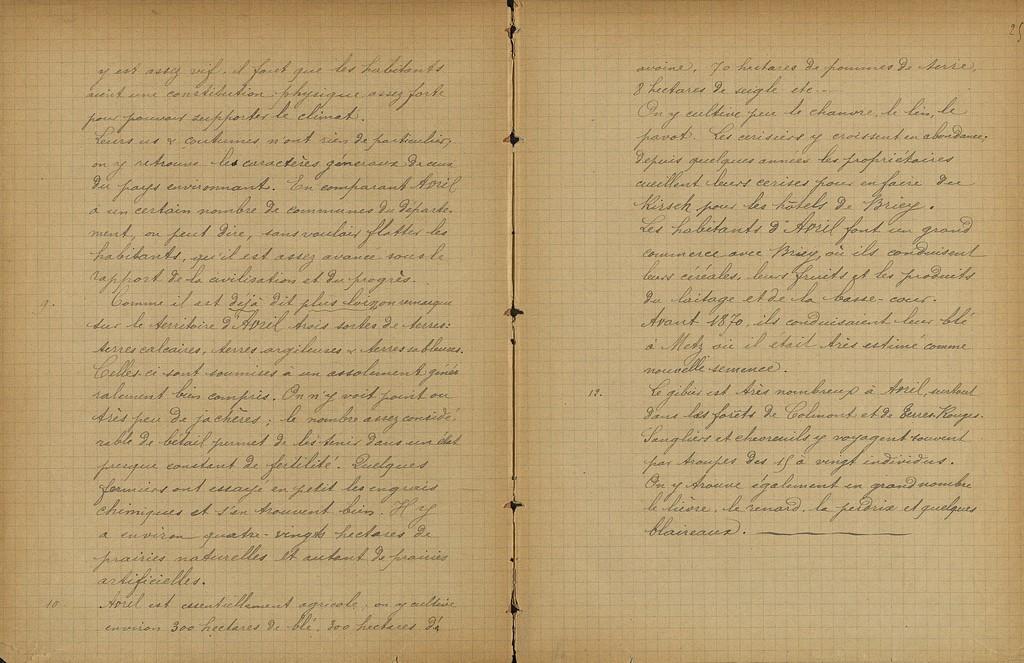 y est assez vif, il faut que les habitants
aient une constitution physique assez forte
pour pouvoir supporter le climat.
Leurs us & coutumes n'ont rien de particulier,
on y retrouve les caractères généraux de ceux
du pays environnant. En comparant Avril
à un certain nombre de communes du départe-
ment, on peut dire, sans vouloir flatter les
habitants, qu'il est assez avancé sous le
rapport de la civilisation et du progrès.
9. Comme il est déjà dit plus loin, on remarque
sur le territoire d'Avril trois sortes de terres:
terres calcaires, terres argileuses & terres sableuses.
Celles-ci sont soumises à un assolement géné-
ralement bien compris. On n'y voit point ou
très peu de jachères; le nombre assez considé-
rable de bétail permet de les tenir dans un état
presque constant de fertilité. Quelques
fermiers ont essayé en petit les engrais
chimiques et s'en trouvent bien. Il y
a environ quatre-vingts hectares de
prairies naturelles et autant de prairies
artificielles.
10. Avril est essentiellement agricole, on y cultive
environ 300 hectares de blé, 300 hectares d'
25
avoine, 70 hectares de pommes de terre,
8 hectares de seigle etc...
On y cultive peu le chanvre, le lin, le
pavot. Les cerisiers y croissent en abondance;
depuis quelques années les propriétaires
cueillent leurs cerises pour en faire du
Kirsch pour les hôtels de Briey.
Les habitants d'Avril font un grand
commerce avec Briey, où ils conduisent
leurs céréales, leurs fruits et les produits
du laitage et de la basse-cour.
Avant 1870, ils conduisaient leur blé
à Metz où il était très estimé comme
nouvelle semence.
12. Le gibier est très nombreux à Avril, surtout
dans les forêts de Colmont et de Terres-Rouges.
Sangliers et chevreuils y voyagent souvent
par troupes de 15 à vingt individus.
On y trouve également en grand nombre
le lièvre, le renard, la perdrix et quelques
blaireaux.